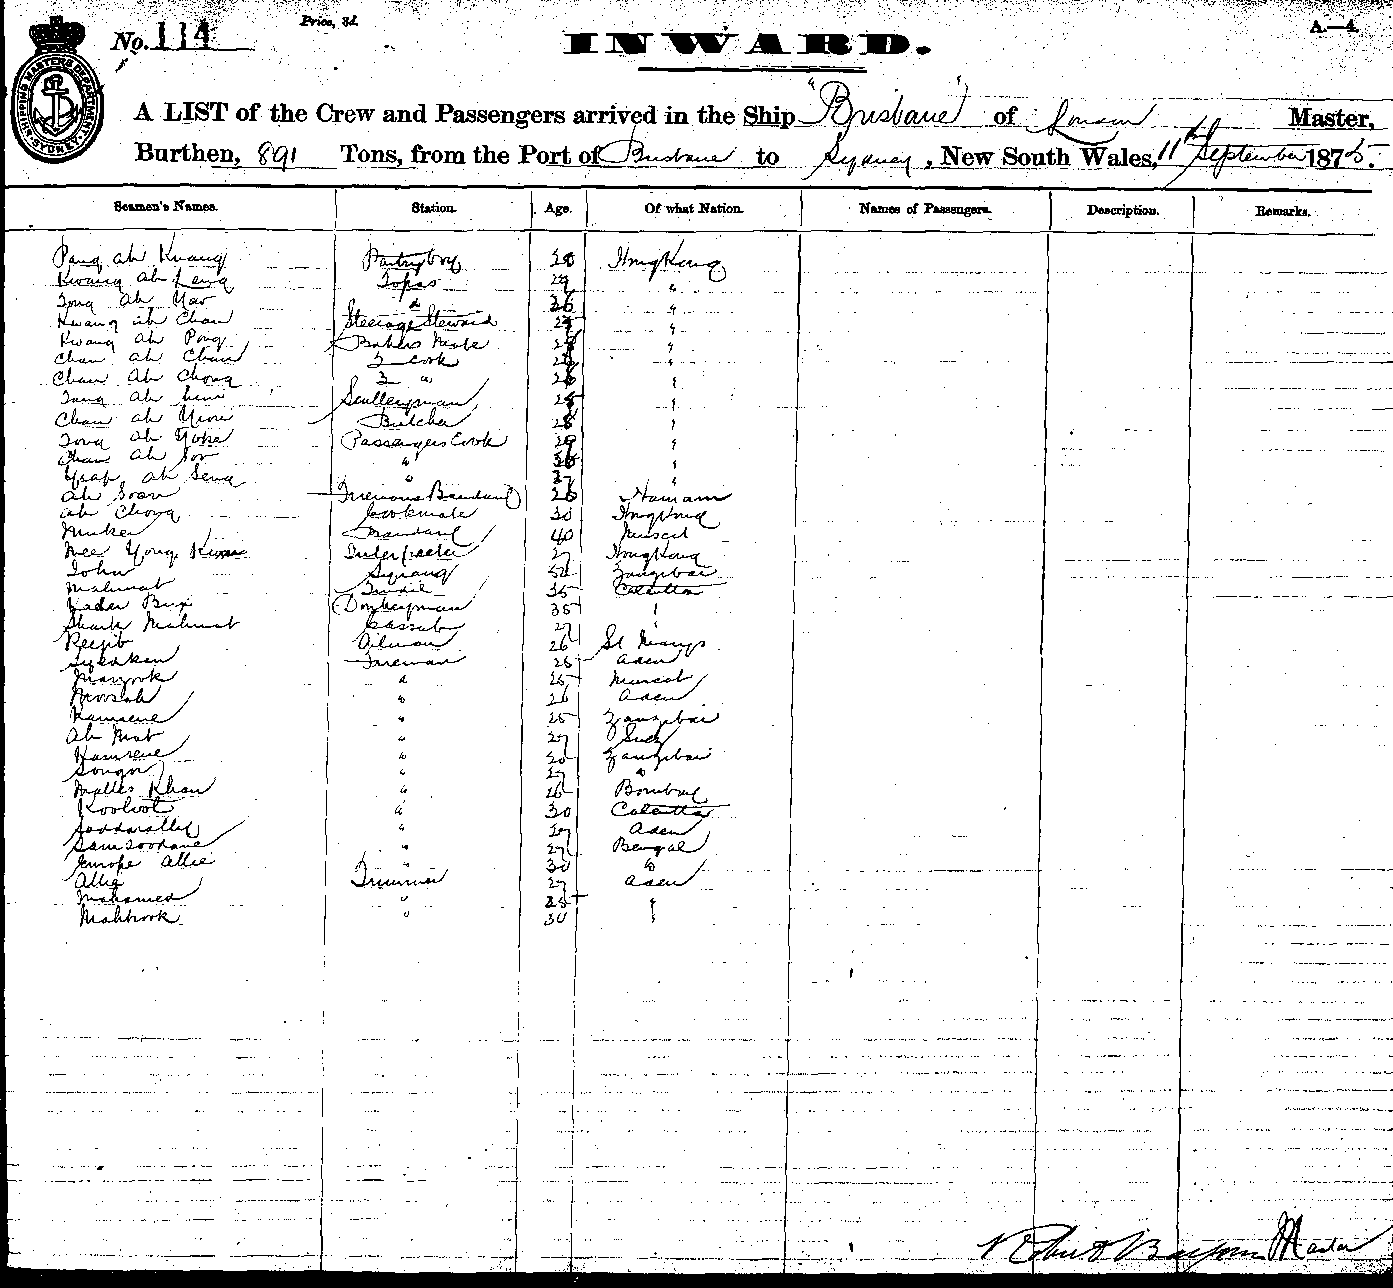 No. 114
Price, 3d.
INWARD.
A.—4.
SHIPPING MASTERS DEPARTMENT SYDNEY
A LIST of the Crew and Passengers arrived in the Ship "Brisbane" of London Master,
Burthen, 891 Tons, from the Port of Brisbane to Sydney, New South Wales, 11th September 1875.
Seamen's Names. Station. Age. Of what Nation. Names of Passengers. Description. Remarks.
Pang ah Kwang Pantryboy 28 HongKong
Kwang ah Leng Topas 29 "
Tong ah Yao " 26 "
Kwang ah Chan Steerage Steward 29 "
Kwang ah Pong Bakers Mate "
Chan ah Chan 2 Cook "
Chan Ah Chong 3 " 26 "
Tang ah Sculleryman 28 "
Chan ah Butcher 28 "
Tong ah Passengers Cook 29 "
Chan ah " "
ah Seng " 27 "
ah Soan Firemans Bandary 26 Hainam
ah Chong Cookmate 30 HongKong
Bandary 40 Muscat
Mee Yong Interpreter 27 HongKong
John Syrang Zanzibar
Mahmat Tindal 35 Calcutta
Kader Bux Donkeyman 35 "
Shaik Mahmat Cassab 27 "
Rejib Oilman 26 St Marys
Fireman 25 Aden
Marzook " 25 Muscat
Moosah " 26 Aden
Hamsene " 25 Zanzibar
Ah Mat " 27 Suez
Hamsene " 30 Zanzibar
Songor " 27 "
Khan " 26 Bombay
" 30 Calcutta
" 27 Aden
Samsoodane " 27 Bengal
Europe Allie " 30 "
Allie Trimmer 27 Aden
Mahomed " 25 "
Mahbrook " 30 "
Robert Master